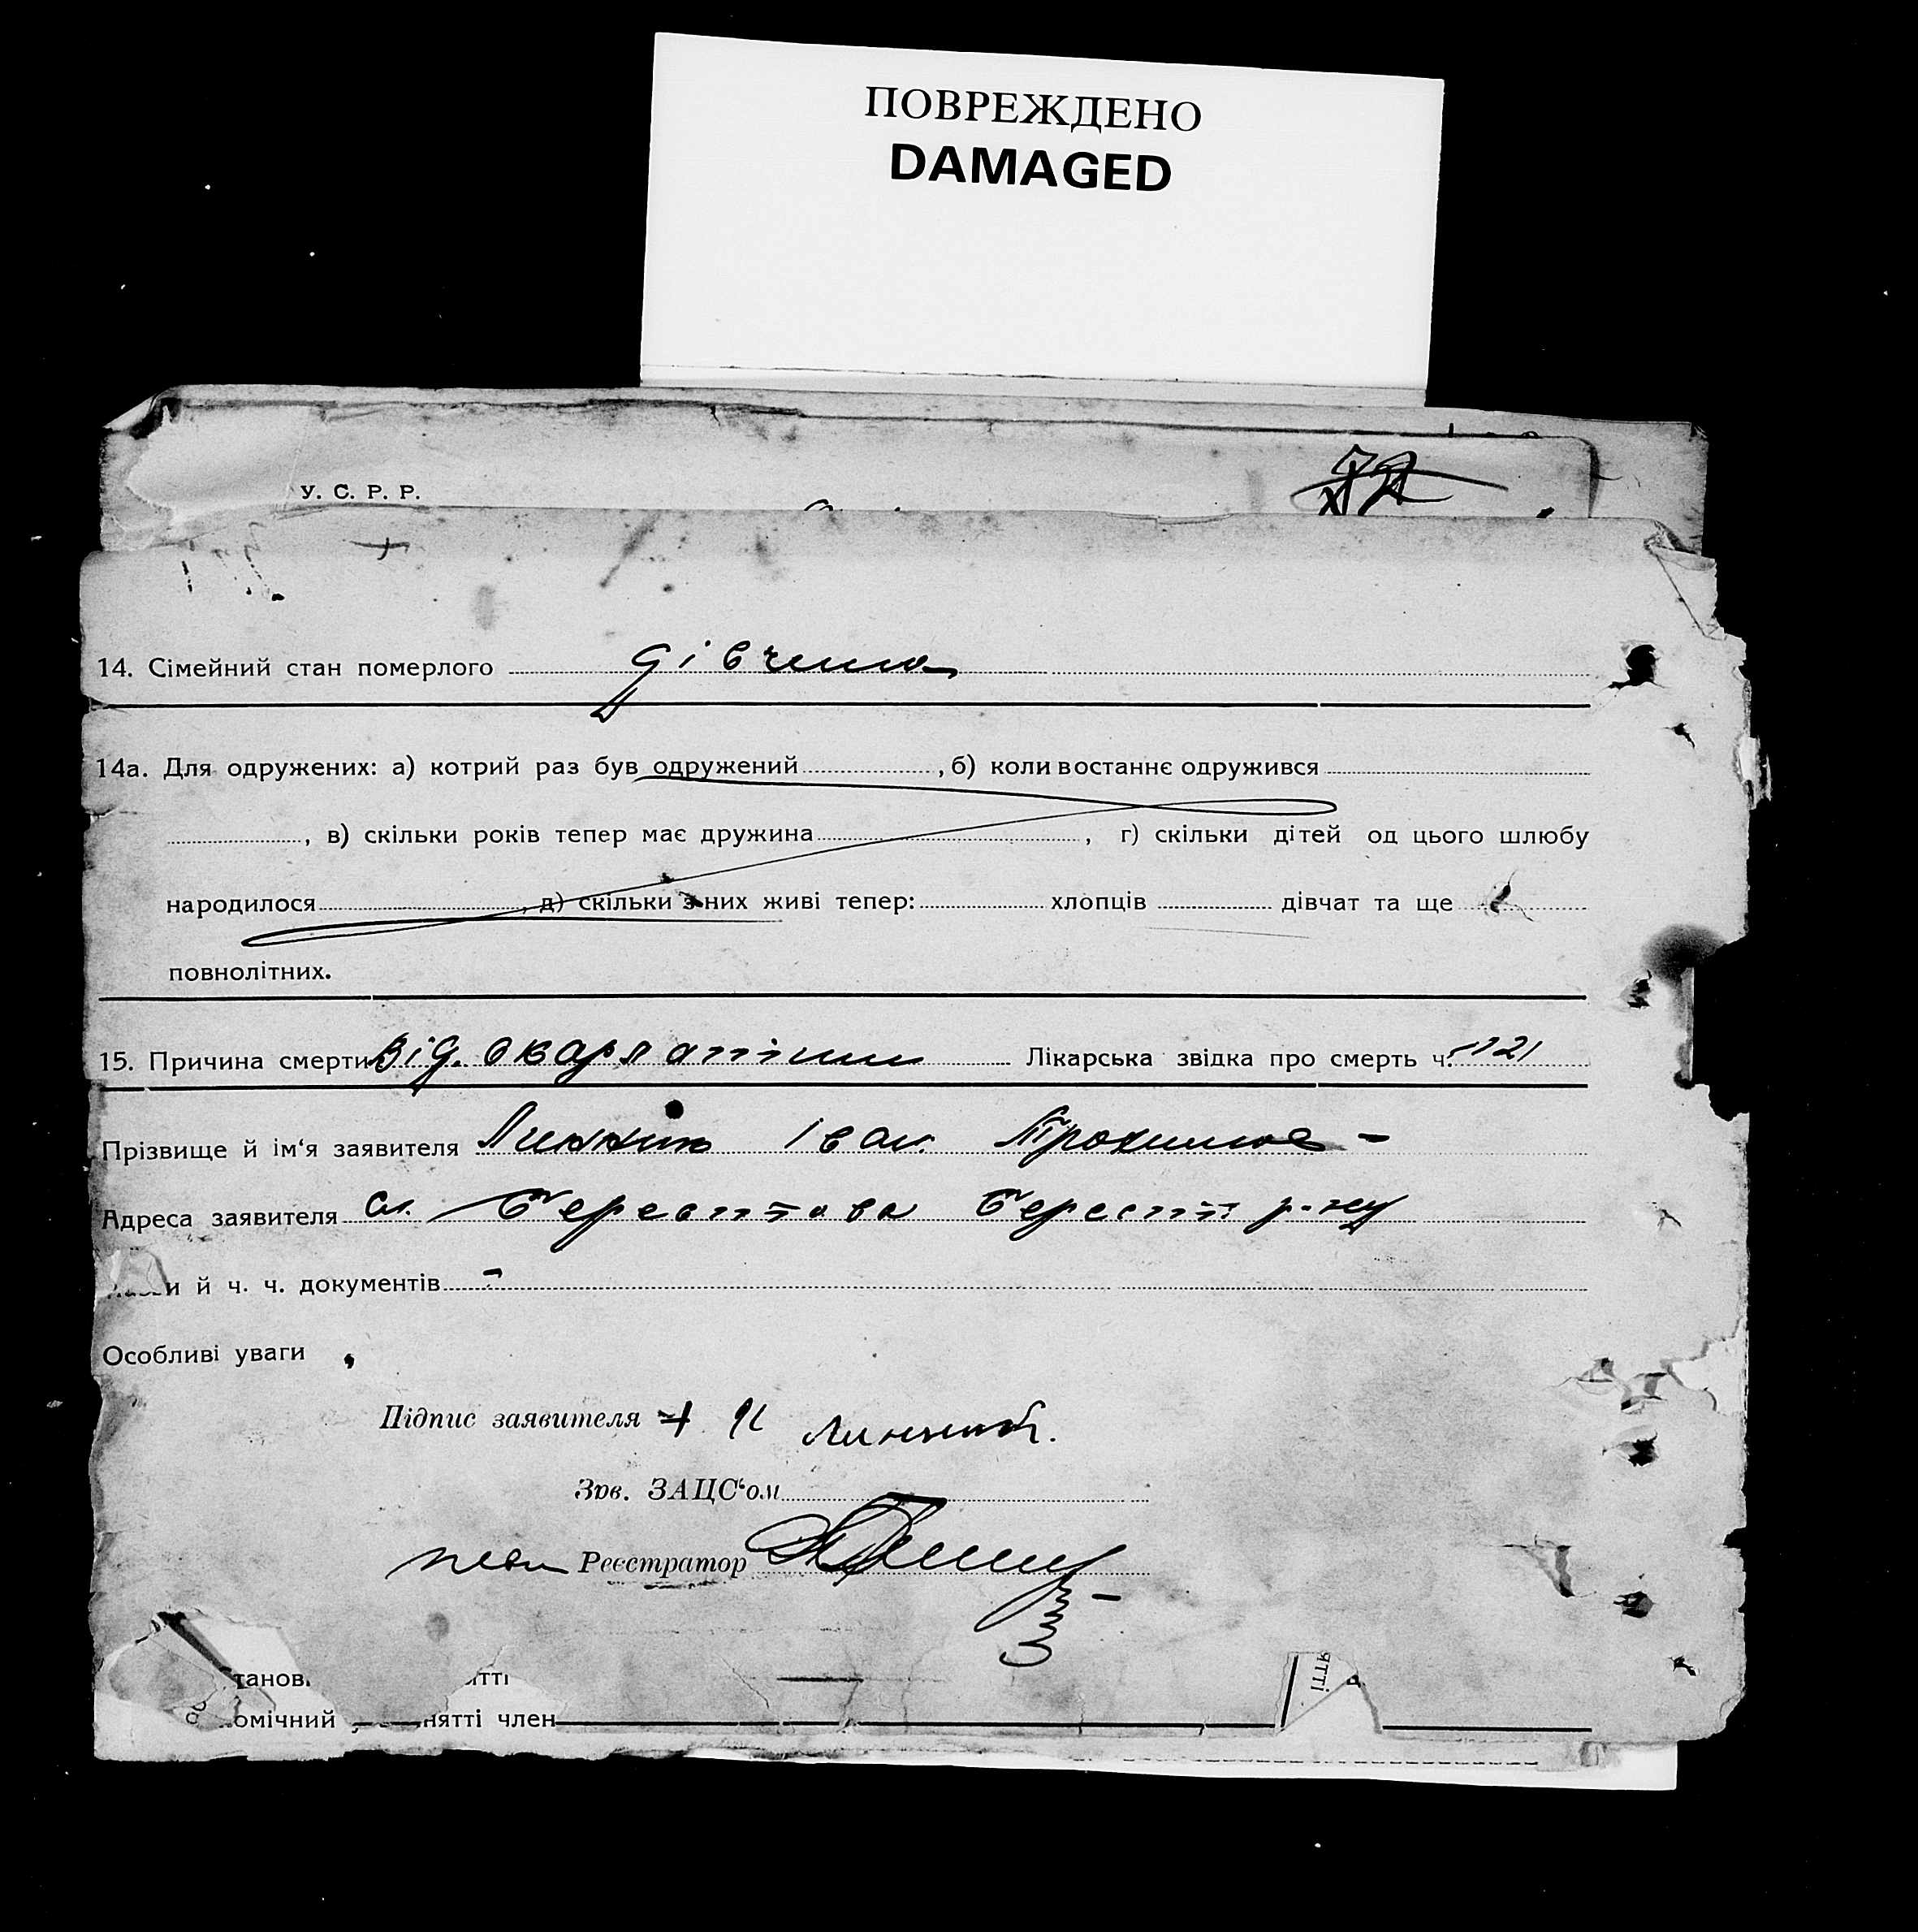 ПОВРЕЖДЕНО
DAMAGED
У. С. Р. Р.
72
14. Сімейний стан померлого дівчина
14а. Для одружених: а) котрий раз був одружений , б) коли востаннє одружився
, в) скільки років тепер має дружина , г) скільки дітей од цього шлюбу
народилося , д) скільки з них живі тепер: хлопців дівчат та ще
повнолітних.
15. Причина смерти Від скарлатини Лікарська звідка про смерть ч. 121
Прізвище й ім'я заявителя Іван
Адреса заявителя сл. Берестова Берест р-ну
й ч. ч. документів -
Особливі уваги
Підпис заявителя
Зав. ЗАЦС'ом
Реєстратор
танов ятті
омічний нятті член
ятті